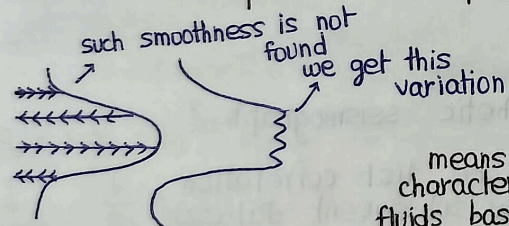 such smoothness is not
found
we get this
variation
means
character
fluids bas